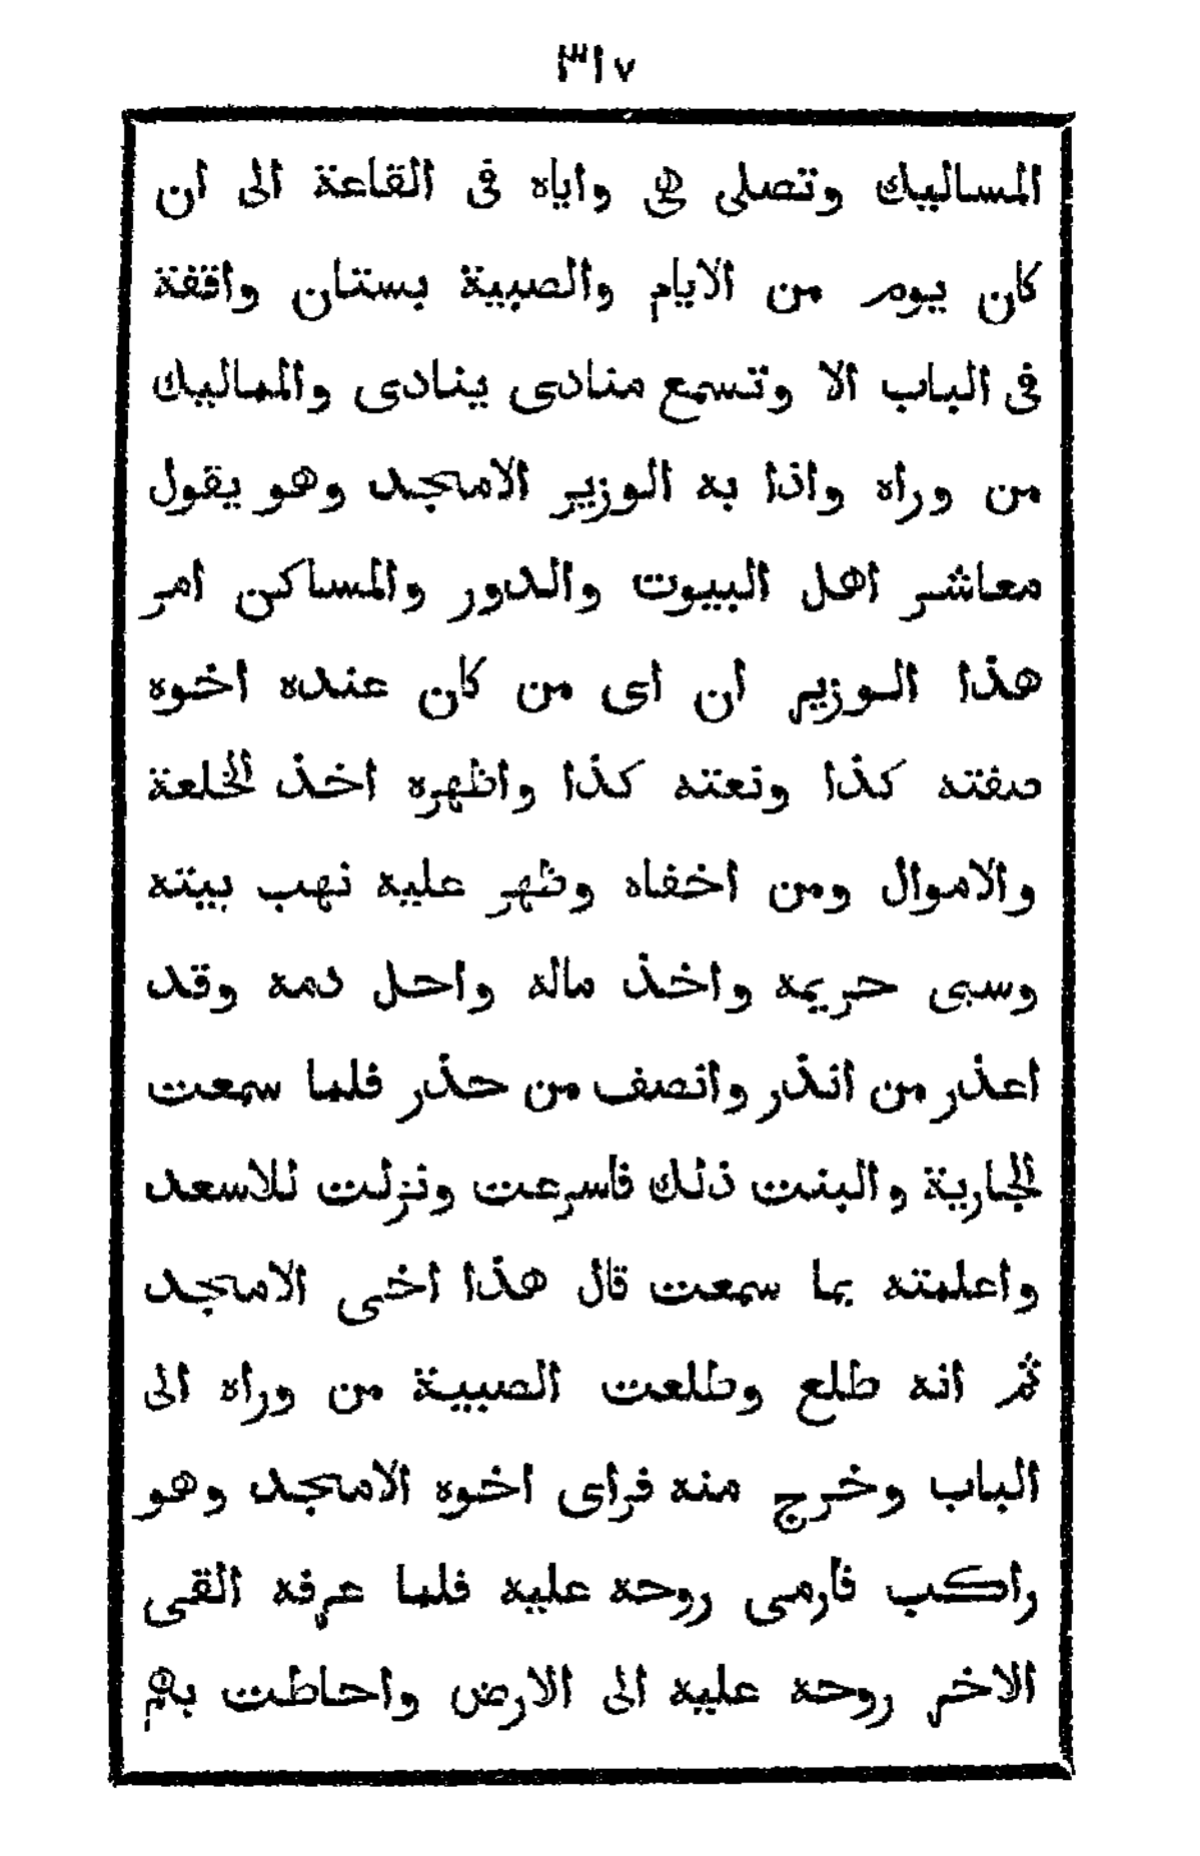 ٣١٧
المساليبك وتصلى هى واياه فى القاعة الى ان
كان يوم من الايام والصبية بستان واقفة
فى الباب الا وتسمع منادى ينادى والمماليك
من وراه واذا به الوزير الامجد وهو يقول
معاشر اهل البيوت والدور والمساكن امر
هذا الوزير ان اى من كان عنده اخوه
صفته كذا ونعته كذا واظهره اخذ الخلعة
والاموال ومن اخفاه وظهر عليه نهب بيته
وسبى حريمه واخذ ماله واحل دمه وقد
اعذر من انذر وانصف من حذر فلما سمعت
الجارية والبنت ذلك فاسرعت ونزلت للاسعد
واعلمته بما سمعت قال هذا اخى الامجد
ثم انه طلع وطلعت الصبية من وراه الى
الباب وخرج منه فراى اخوه الامجد وهو
راكب فارمى روحه عليه فلما عرفه القى
الاخر روحه عليه الى الارض واحاطت بهم